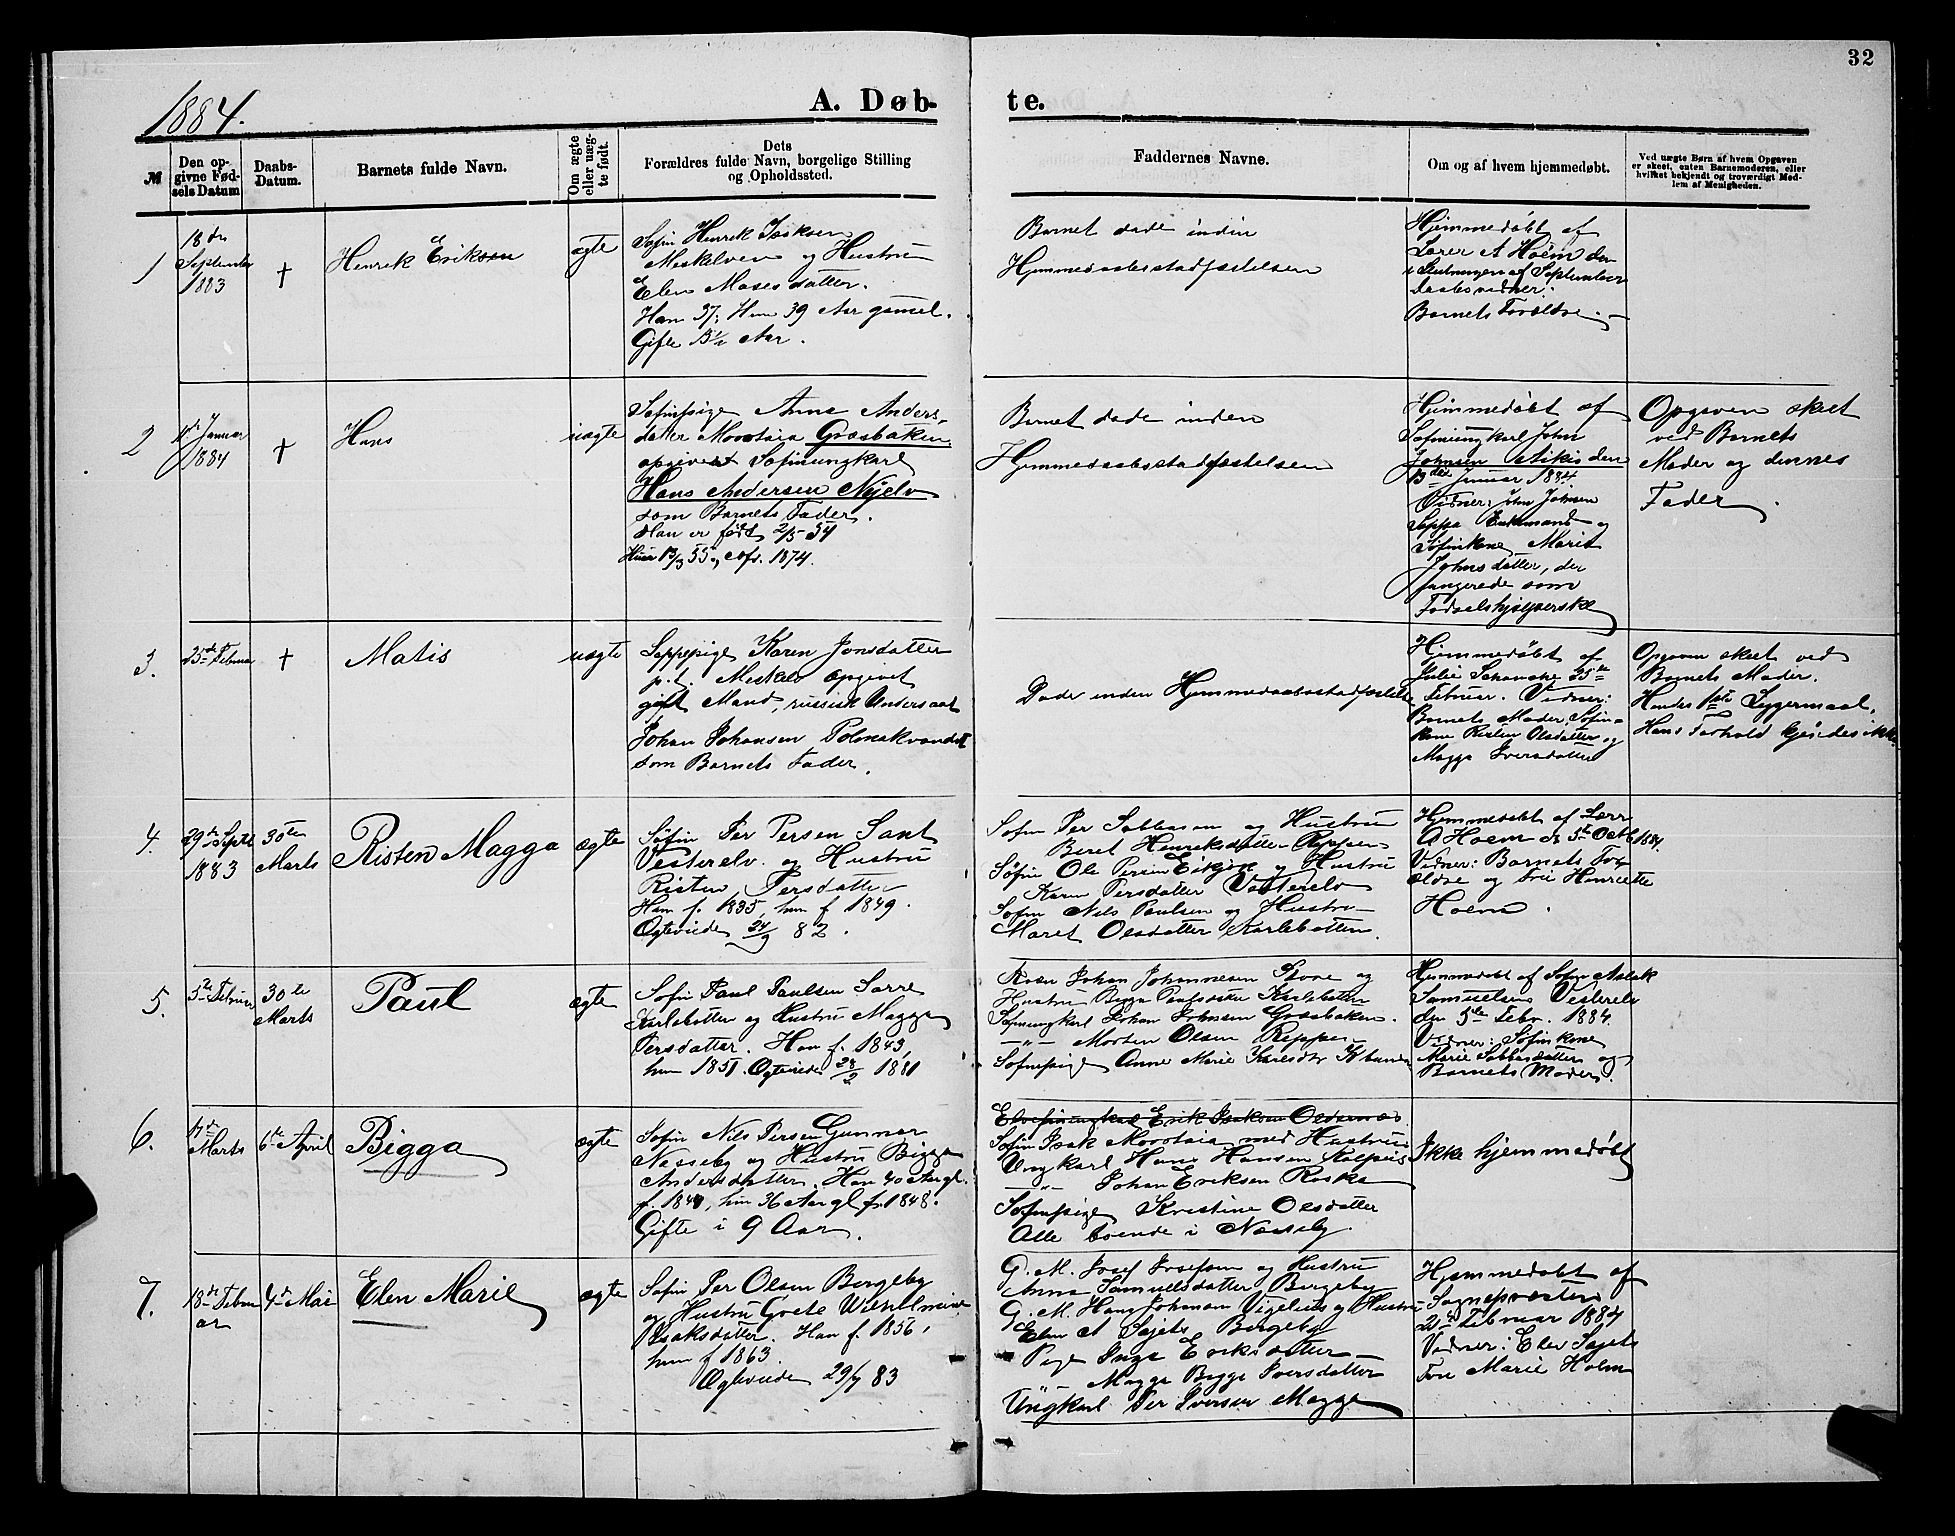 32
1884.
A. Døb-
te.
№
Den op-
givne Fød-
sels Datum
Daabs-
Datum.
Barnets fulde Navn.
Om ægte
eller uæg-
te født.
Dets
Forældres fulde Navn, borgelige Stilling
og Opholdssted.
Faddernes Navne.
Om og af hvem hjemmedøbt.
Ved uægte Børn af hvem Opgaven
er skeet, enten Barnemoderen, eller
hvilket bekjendt og troværdigt Med-
lem af Menigheden.
1
18de
September
1883
†
Henrik Eriksen
ægte
Søfin Henrik Isaksen
Meskelven og Hustru
Elen Mosesdatter.
Han 37, Hun 39 Aar gamel.
Gifte Aar.
Barnet døde inden
Hjemmedaabsstadfæstelsen
Hjemmedøbt af
Lærer A Holm den
i Slutningen af September
Daabsvidner:
Barnets Forældre.
2
Januar
1884
†
Hans
uægte
Søfinpige Anne Anders-
datter Morotaia Græsbaken
opgivet Søfinungkarl
Hans Andersen Nyelv
som Barnets Fader.
Han er født 2/5 54
Hun 13/3 55, cofr. 1874.
Barnet døde inden
Hjemmedaabsstadfæstelsen
Hjemmedøbt af
Søfinungkarl John
Johnsen Aikio den
13de Januar 1884.
Vidner: John Johnsen
Seppa Enkemand og
Søfinkone Marit
Johnsdatter, der
fungerede som
Fødselshjelperske
Opgaven skeet
ved Barnets
Moder og dennes
Fader.
3.
25de Februar
†
Matis
uægte
Lappepige Karen Jonsdatter
p.t. Meskelv opgivet
gift Mand, russisk Undersaat
Johan Johansen Polmakvandet
som Barnets Fader.
Døde inden Hjemmedaabsstadfæstelse
Hjemmedøbt af
Julie Schanche 25de
Februar. Vidner:
Barnets Moder, Søfin-
kone Risten Olsdatter og
Magga Iversdatter
Opgaven skeet ved
Barnets Moder.
Hendes 1ste Leiermaal.
Hans Forhold kjendes ikke
4.
29de Septb
1883
30te
Marts
Risten Magga
ægte
Søfin Per Persen Sant
Vesterelv og Hustru
Risten Persdatter
Han f. 1835, hun f 1849.
Ægteviede 24/9 82.
Søfin Per Sabbasen og Hustru
Beret Henriksdatter Reppen
Søfin Ole Persen Eikjok og Hustru
Karen Persdatter Vesterelv
Søfin Nils Paulsen og Hustru
Maret Olsdatter Karlebotten.
Hjemmedøbt af Lærer
A Holm d. 5te Octb 1884.
Vidner: Barnets For-
ældre og Frue Henriette
Holm.
5.
5te Februar
30te
Marts
Paul
ægte
Søfin Paul Paulsen Sarre
Karlebotten og Hustru Magga
Persdatter. Han f. 1843,
hun 1851. Ægteviede 28/2 1881
Kvæn Johan Johannesen Store og
Hustru Bigga Paulsdatter Karlebotten
Søfinungkarl Johan Johnsen Græsbaken.
—"— Morten Olsen Reppen
Søfinpige Anne Marie Karlsdtr
Hjemmedøbt af Søfin Aslak
Samuelsen Vesterelv
den 5te Febr. 1884.
Vidner: Søfinkone
Marie Sabbasdatter og
Barnets Moder.
6.
Marts
6te April
Bigga
ægte
Søfin Nils Persen Gunnar
Næsseby og Hustru Bigga
Andersdatter. Han 40 Aar gl.
f. 1844, hun 36 Aar gl f. 1848.
Gifte i 9 Aar.
Elvefinungkarl Erik Isaksen
Søfin Isak Morotaia med Hustru
Ungkarl Hans Hansen Kalpus
—"— Johan Eriksen Roska
Søfinpige Kristine Olsdatter
Alle boende i Næsseby.
Ikke hjemmedøbt
7.
18de Febru
ar
4de Mai
Elen Marie
ægte
Søfin Per Olsen Bergeby
og Hustru Grete Wilhelmine
Isaksdatter. Han f. 1856,
hun f 1863.
Ægteviede 29/7 83
G. M. Josef Josefsen og Hustru
Anna Samuelsdatter Bergeby
G. M. Hans Johnsen Vigelius og Hustru
Elen A Sajets Bergeby
Pige Inga Eriksdatter
—"— Magga Bigga Iversdatter
Ungkarl Per Iversen Magga
Hjemmedøbt af
Sognepræsten
21de Februar 1884
Vidner: Elev Sajets
Frue Marie Holm